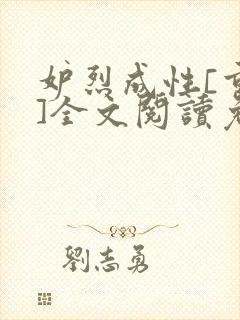 妒烈成性[
]全文閱讀
劉志勇